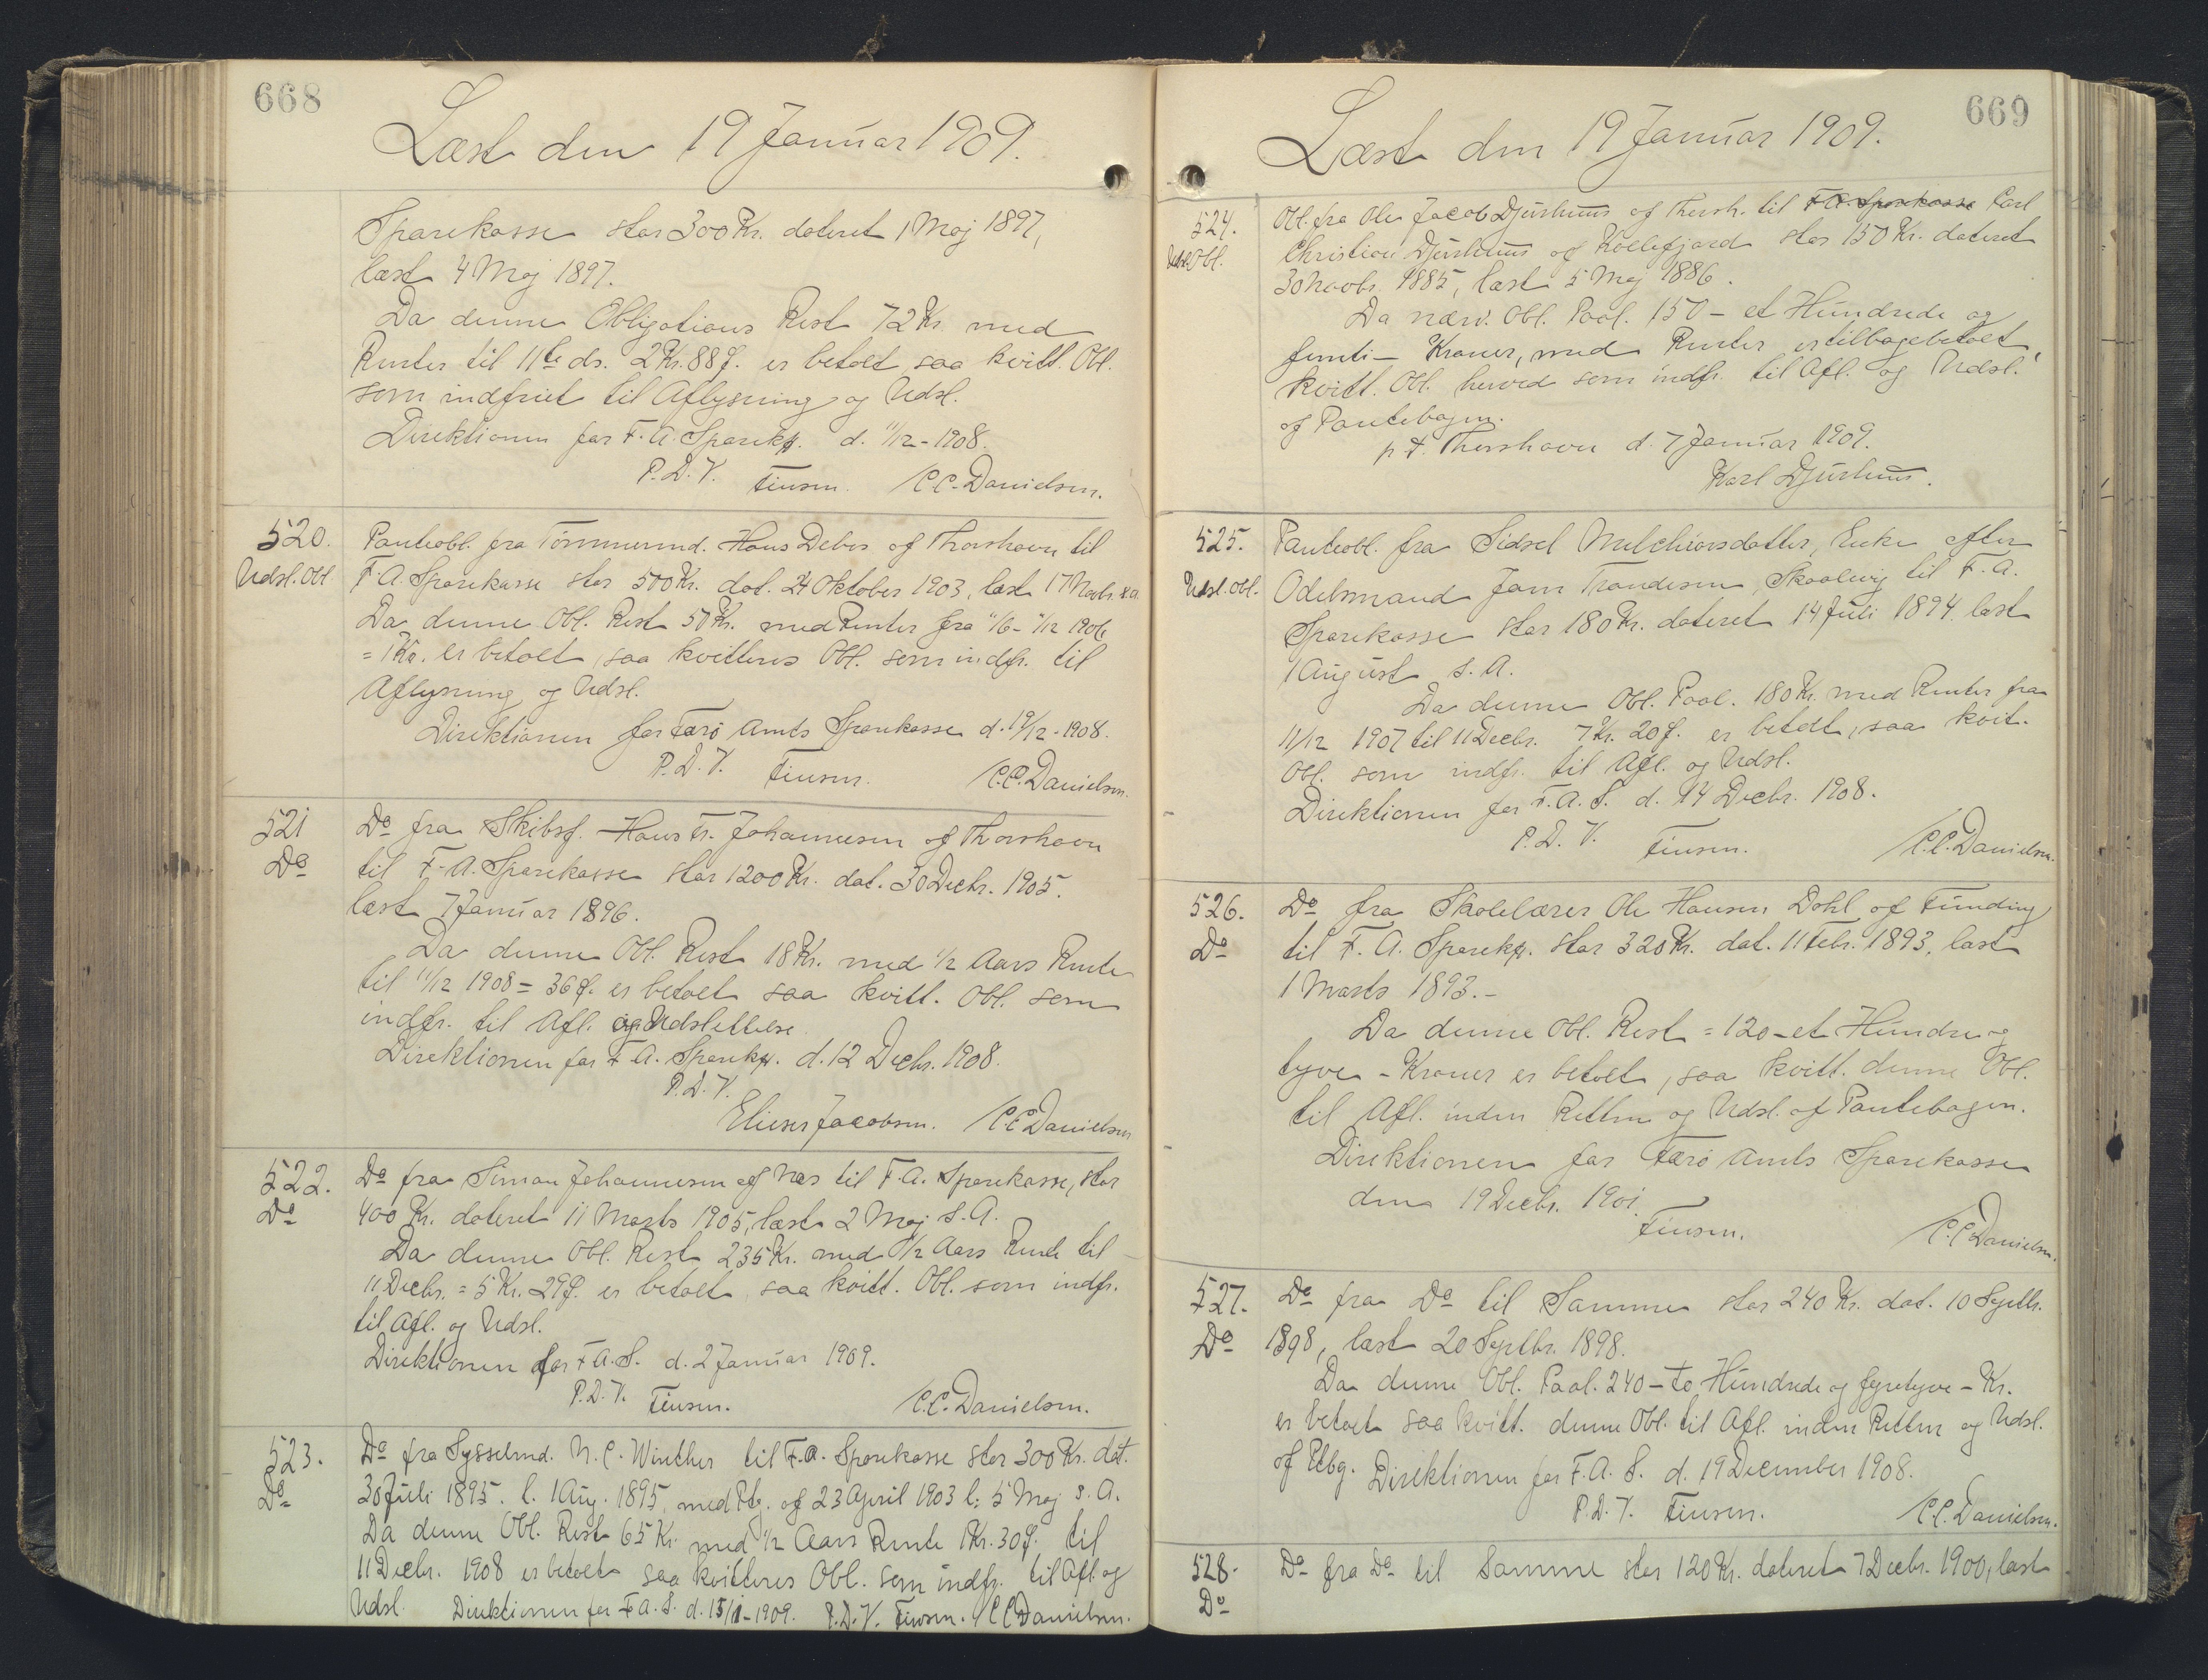 668
Læst den 19 Januar 1909.
Sparekasse stor 300 Kr. dateret 1 Maj 1897,
læst 4 Maj 1897.
Da denne Obligations Rest 72 Kr. med
Renter til 11te ds. 2 Kr. 88 Ø. er betalt saa kvitt. Obl.
som indfriet til Aflysning og Udsl.
Direktionen for F. A. Sparek. d. 11/12 - 1908.
P. D. V. Finsen. C. C. Danielsen.
520.
Udsl. Obl.
Panteobl. fra Tømmermd. Hans Debes af Thorshavn til
F. A. Sparekasse stor 500 Kr. dat. 24 Oktober 1903, læst 17 Novbr. s. A.
Da denne Obl. Rest 50 Kr. med Renter fra 11/6 - 11/12 1908
= 1 Kr. er betalt, saa kvitteres Obl. som indfr. til
Aflysning og Udsl.
Direktionen for Færø Amts Sparekasse d. 19/12 - 1908.
P. D. V. Finsen. C. C. Danielsen.
521
Do
Do fra Skibsf. Hans Fr. Johannesen af Thorshavn
til F. A. Sparekasse stor 1200 Kr. dat. 30 Decbr. 1905.
læst 7 Januar 1896.
Da denne Obl. Rest 18 Kr. med 1/2 Aars Rente
til 11/12 1908 = 36 Ø. er betalt saa kvitt. Obl. som
indfr. til Afl. og Udslettelse.
Direktionen for F. A. Sparek. d. 12 Decbr. 1908.
P. D. V.
Elieser Jacobsen. C. C. Danielsen
522.
Do
Do fra Simon Johannesen af Næs til F. A. Sparekasse, stor
400 Kr. dateret 11 Marts 1905, læst 2 Maj s. A.
Da denne Obl. Rest 235 Kr. med 1/2 Aars Rente til
11 Decbr. = 5 Kr. 29 Ø. er betalt saa kvitt. Obl. som indfr.
til Afl. og Udsl.
Direktionen for F. A. S. d. 2 Januar 1909.
P. D. V. Finsen. C. C. Danielsen.
523.
Do
Do fra Sysselmd. N. C. Winther til F. A. Sparekasse stor 300 Kr. dat.
30 Juli 1895. l. 1 Aug. 1895, med Ptg. af 23 April 1903 l. 5 Maj s. A.
Da denne Obl. Rest 65 Kr. med 1/2 Aars Rente 1 Kr. 30 Ø. til
11 Decbr. 1908 er betalt saa kvitteres Obl. som indfr. til Afl. og
Udsl. Direktionen for F. A. S. d. 15/1 - 1909. P. D. V. Finsen. C C Danielsen.
669
Læst den 19 Januar 1909.
524.
Udsl. Obl.
Obl. fra Ole Jacob Djurhuus af Thorsh. til F. A. Sparekasse Carl
Christian Djurhuus af Kollefjord stor 150 Kr. dateret
30 Novbr. 1885, læst 5 Maj 1886.
Da nærv. Obl. Paal. 150 - et Hundrede og
femti - Kroner, med Renter er tilbagebetalt,
kvitt. Obl. herved som indfr. til Afl. og Udsl.
af Pantebogen.
p. t. Thorshavn d. 7 Januar 1909.
Karl Djurhuus.
525.
Udsl. Obl.
Panteobl. fra Sidsel Melchiorsdatter, Enke efter
Odelsmand Joen Trondesen, Skaalevig til F. A.
Sparekasse stor 180 Kr. dateret 14 Juli 1894 læst
1 August s. A.
Da denne Obl. Paal. 180 Kr. med Renter fra
11/12 1907 til 11 Decbr. 7 Kr. 20 Ø. er betalt, saa kvit.
Obl. som indfr. til Afl. og Udsl.
Direktionen for F. A. S. d. 14 Decbr. 1908.
P. D. V. Finsen. C. C. Danielsen.
526.
Do
Do fra Skolelærer Ole Hansen Dahl af Funding
til F. A. Sparek. stor 320 Kr. dat. 11 Febr. 1893, læst
1 Marts 1893. -
Da denne Obl. Rest = 120 - et Hundre og
tyve - Kroner er betalt, saa kvitt. denne Obl.
til Afl. inden Retten og Udsl. af Pantebogen.
Direktionen for Færø Amts Sparekasse
den 19 Decbr. 1901.
Finsen. C. C. Danielsen.
527.
Do
Do fra Do til Samme stor 240 Kr. dat. 10 Septbr.
1898, læst 20 Septbr. 1898.
Da denne Obl. Paal. 240 - to Hundrede og fyretyve - Kr.
er betalt saa kvitt. denne Obl. til Afl. inden Retten og Udsl.
af Ptbg. Direktionen for F. A. S. d. 19 December 1908.
P. D. V. Finsen. C. C. Danielsen.
528.
Do
Do fra Do til Samme stor 120 Kr. dateret 7 Decbr. 1900, læst